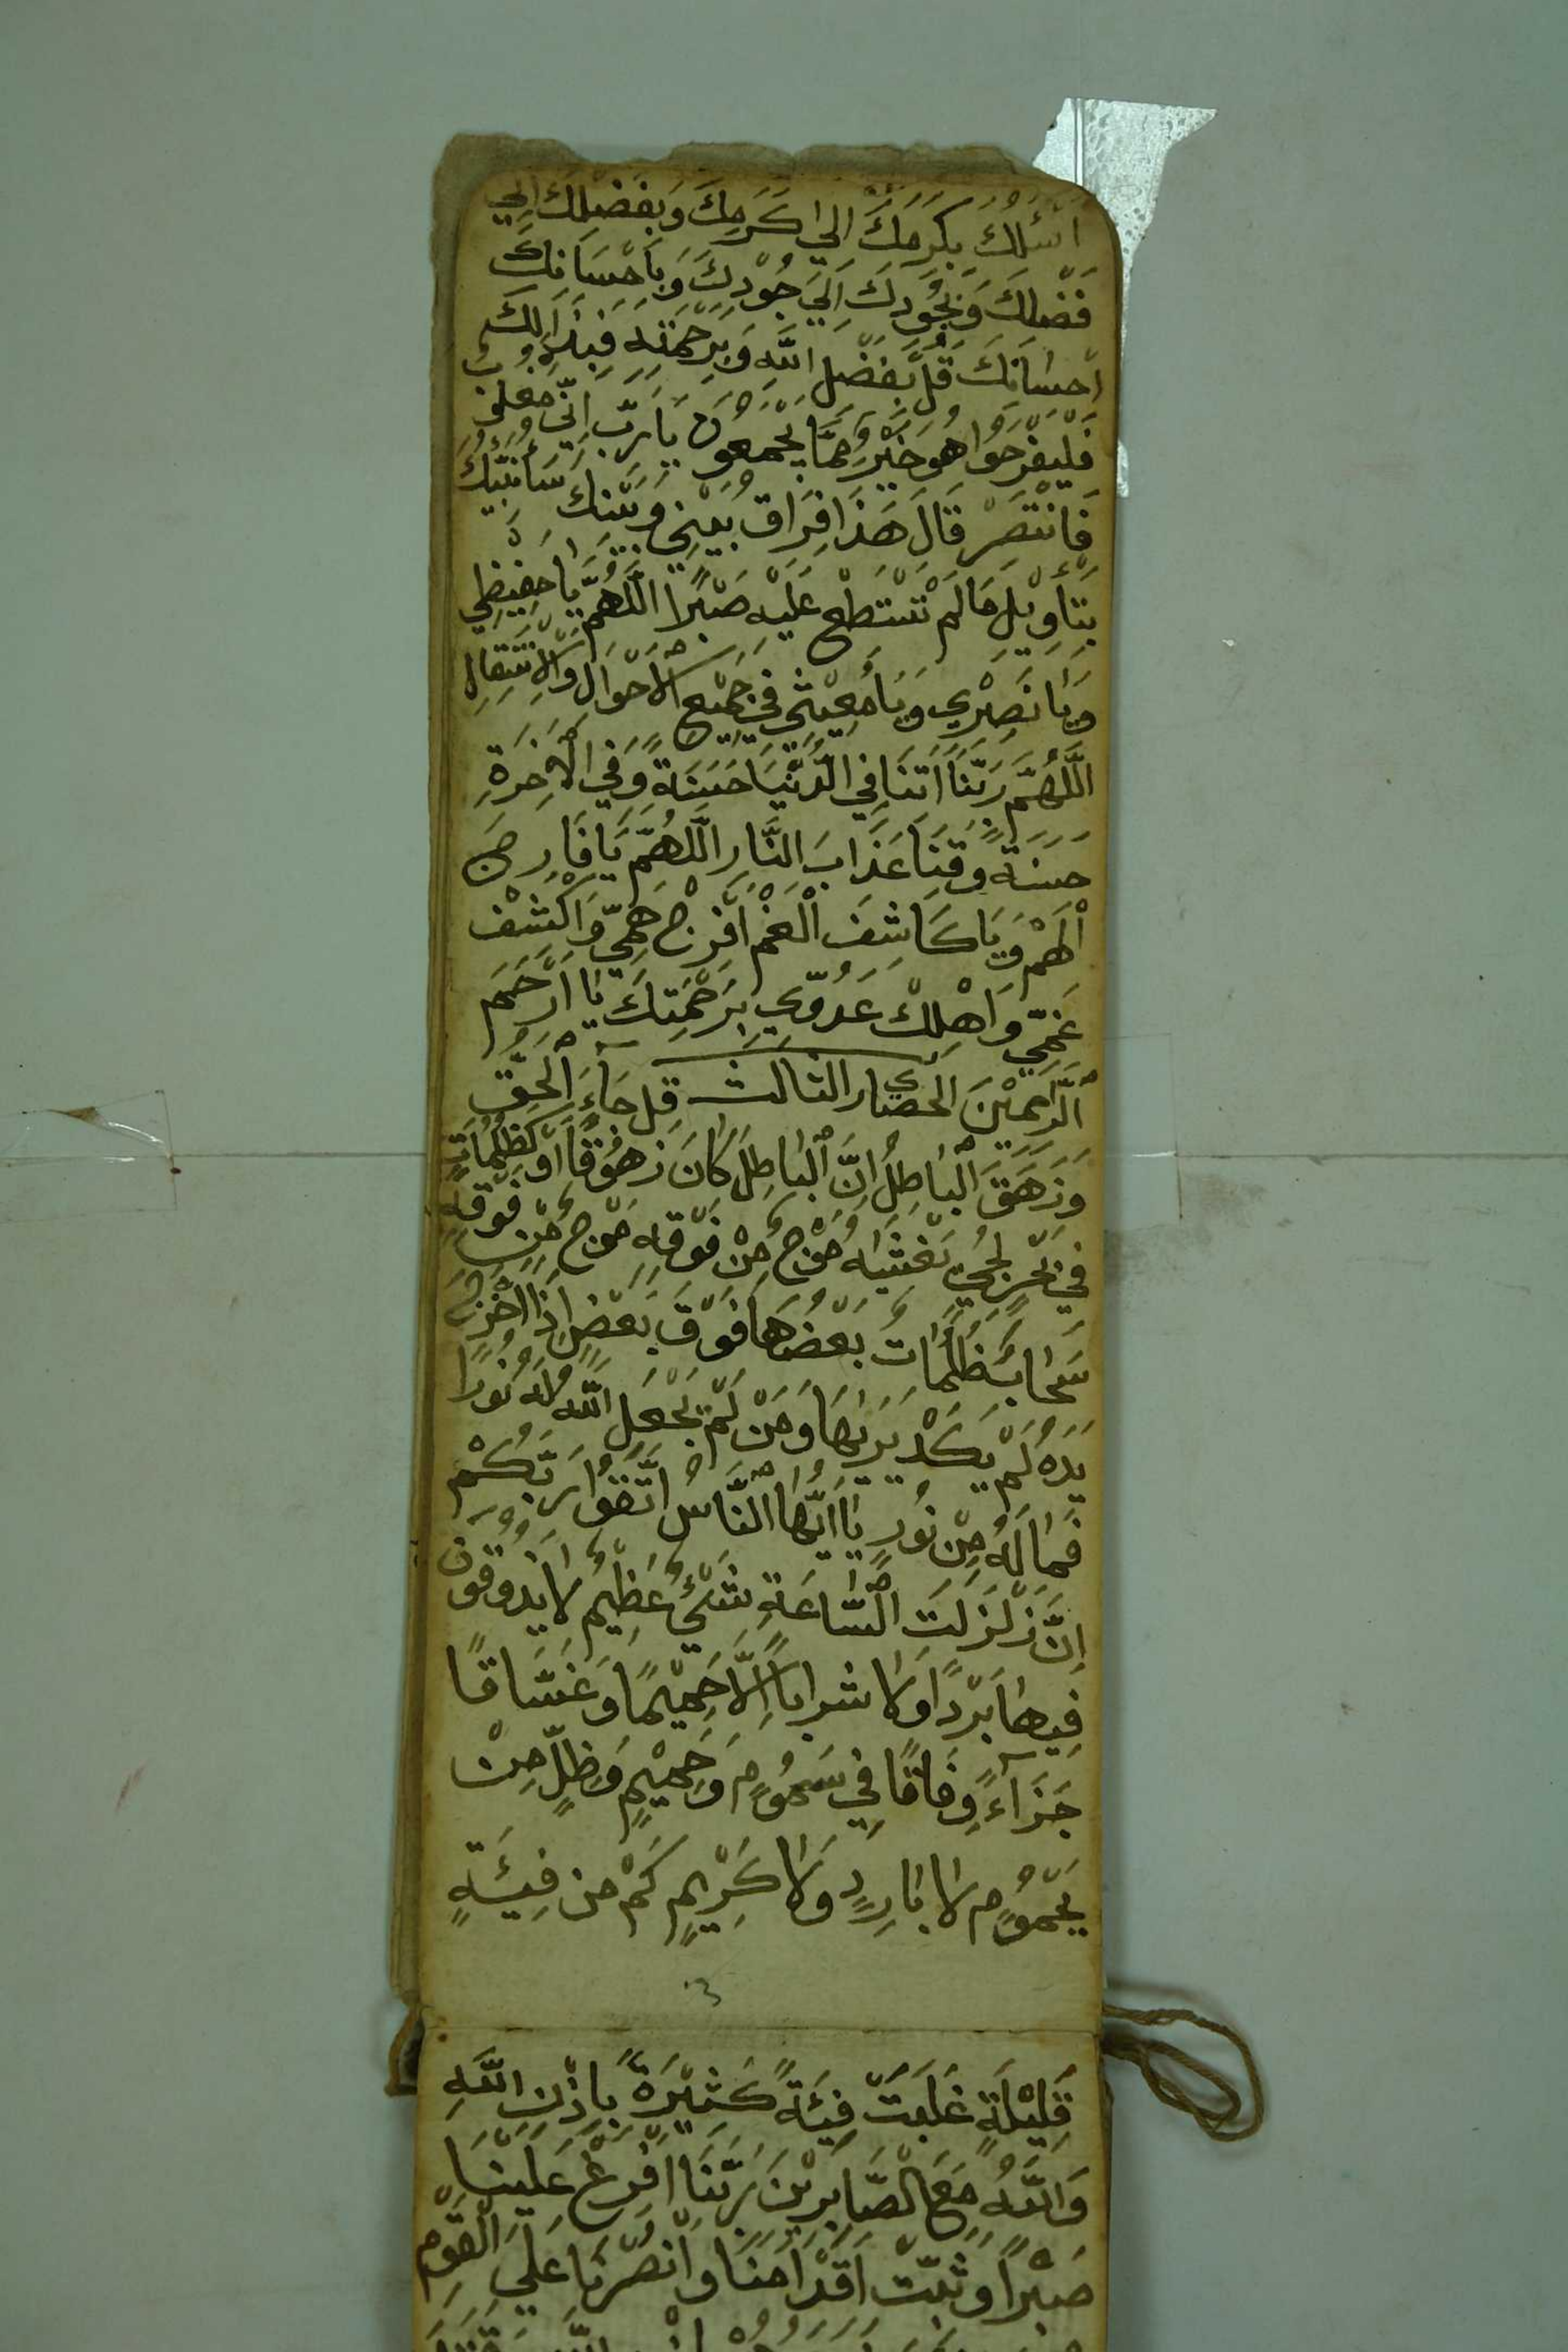 اَسْئَلُكَ بِكَرَمِكَ اِلَي كَرَمِكَ وَبِفَضْلِكَ اِلَي
فَضْلِكَ وَبِجُوْدِكَ اِلَيَ جُوْدِكَ وَبِاَحْسَانِكَ
اِحْسَانِكَ قُلْ بِفَضْلِ اللَّهِ وَبِرَحْمَتِهِ فَبِذَالِكَ
فَلْيَفْرَحُوْا هُوَ خَيْرٌ مِمَّا يَجْمَعُوْنَ يَارَبِّ اِنِّي مَغْلُوْبٌ
فَانْتَصِرْ قَالَ هَذَا فِرَاقُ بَيْنِي وَبَيْنِكَ سَاُنَبِّئُكَ
بِتَأْوِيْلِ مَالَمْ تَسْتَطِعْ عَلَيْهِ صَبْرًا اَللَّهُمَّ يَا حَفِيْظِي
وَيَا نَصِيْرِي وَيَا مُعِيْنِي فِي جَمِيْعِ الْاَحْوَالِ وَالْاِنْتِقَالِ
اَللَّهُمَّ رَبَّنَا اَتِنَا فِي الدُّنْيَا حَسَنَةً وَفِي الْاَخِرَةِ
حَسَنَةً وَقِنَا عَذَابَ النَّارِ اَللَّهُمَّ يَا فَارِجَ
الْهَمْ وَيَا كَاشِفَ الْغَمْ اَفْرِجْ هَمِّي وَاَكْشِفْ
غَمِّي وَاَهْلِكْ عَدُوِّي بِرَحْمَتِكَ يَا اَرْحَمَ
الرَّاحِمِيْنَ الحصار الثالث قُلْ جَآءَ الْحَقُّ
وَزَهَقَ الْبَاطِلُ اِنَّ الْبَاطِلَ كَانَ زَهُوْقًا اَوْ كَظُلُمَاتٍ
فِي بَحْرٍ لُجِّيٍّ يَغْشَاهُ مَوْجٌ مِنْ فَوْقِهِ مَوْجٌ مِنْ فَوْقِهِ
سَحَابٌ ظُلُمَاتٌ بَعْضُهَا فَوْقَ بَعْضٍ اِذَا اَخْرَجَ
يَدَهُ لَمْ يَكَدْ يَرَيهَا وَمَنْ لَمْ يَجْعَلِ اللَّهُ لَهُ نُوْرًا
فَمَالَهُ مِنْ نُوْرٍ يَا اَيُّهَا النَّاسُ اتَّقُوْا رَبَّكُمْ
اِنَّ زَلْزَلَتَ السَّاعَةِ شَيْئٌ عَظِيْمٌ لَا يَذُوْقُوْنَ
فِيهَا بَرْدًا وَلَا شَرَابًا اِلَّا حَمِيْمًا وَغَسَّاقًا
جَزَآءً وِفَاقًا فِي سَمُوْمٍ وَحَمِيْمٍ وَظِلٍّ مِنْ
يَحْمُوْمٍ لَا بَارِدٍ وَلَا كَرِيْمٍ كَمْ مِنْ فِيئَةٍ
قَلِيْلَةٍ غَلَبَتْ فِيْئَةً كَثِيْرَةً بِاِذْنِ اللَّهِ
وَاللَّهُ مَعَ الصَّابِرِيْنَ رَبَّنَا اَفْرِغْ عَلَيْنَا
صَبْرًا وَثَبِّتْ اَقْدَامَنَا وَانْصُرْنَا عَلَيَ الْقَوْمِ